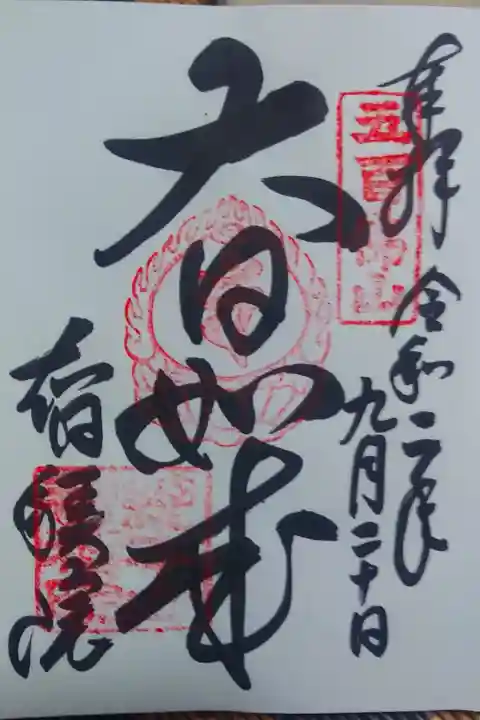 奉拝 令和二年
九月二十日
五百
大日如来
院